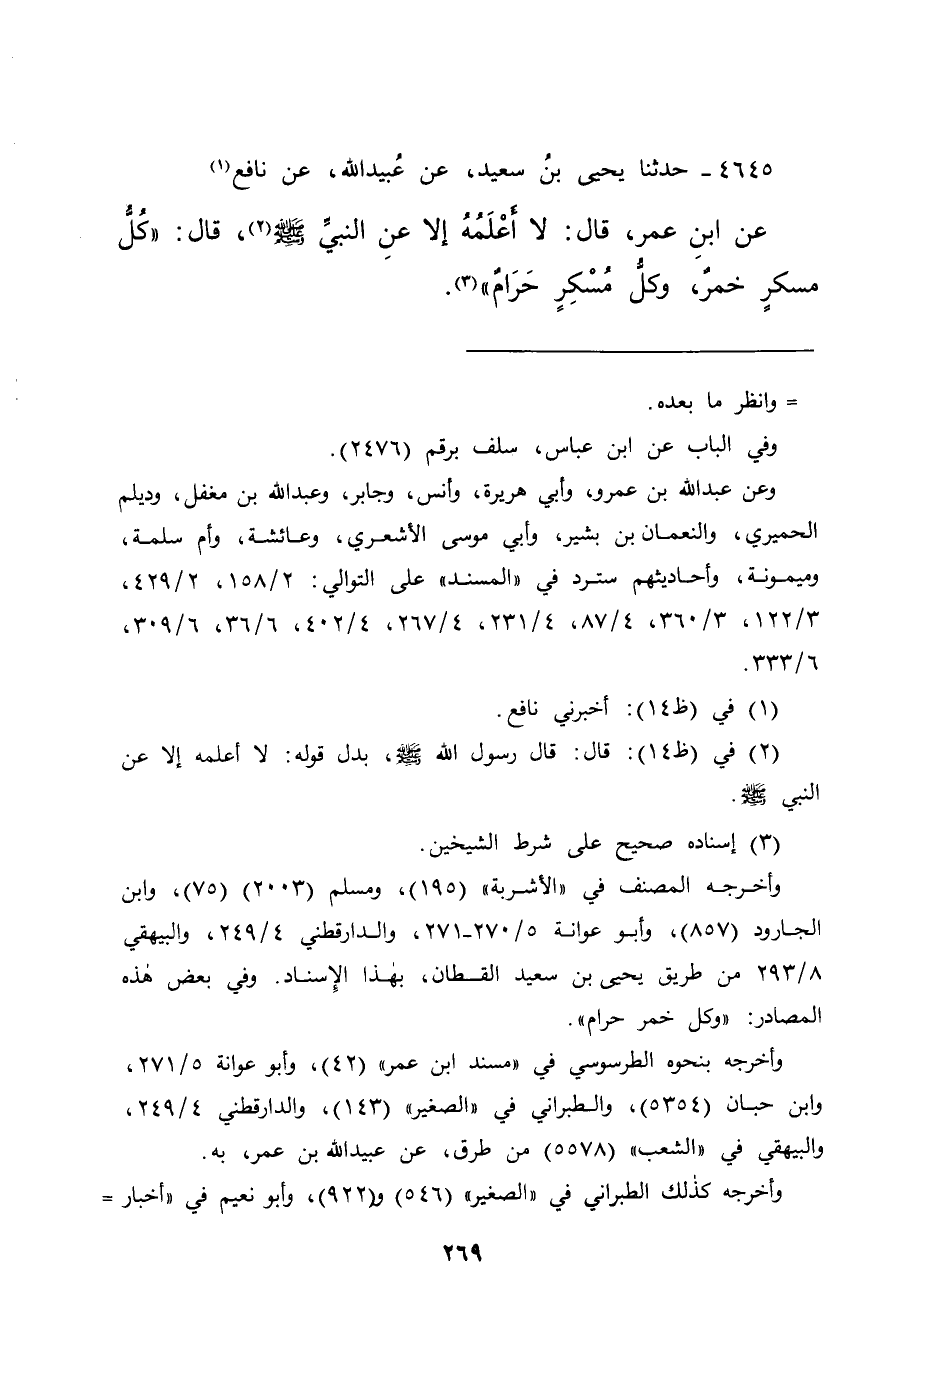 ٤٦٤٥ ـ حدثنا يحيى بنُ سعيد، عن عُبيدالله، عن نافع(١)
عن ابنِ عمر، قال: لا أَعْلَمُهُ إلا عنِ النبيِّ ﷺ(٢)، قال: «كُلُّ
مسكرٍ خمرٌ، وكلُّ مُسْكِرٍ حَرَامٌ»(٣).
= وانظر ما بعده.
وفي الباب عن ابن عباس، سلف برقم (٢٤٧٦).
وعن عبدالله بن عمرو، وأبي هريرة، وأنس، وجابر، وعبدالله بن مغفل، وديلم
الحميري، والنعمان بن بشير، وأبي موسى الأشعري، وعائشة، وأم سلمة،
وميمونة، وأحاديثهم سترد في «المسند» على التوالي: ١٥٨/٢، ٤٢٩/٢،
١٢٢/٣، ٣٦٠/٣، ٨٧/٤، ٢٣١/٤، ٢٦٧/٤، ٤٠٢/٤، ٣٦/٦، ٣٠٩/٦،
٣٣٣/٦.
(١) في (ظ١٤): أخبرني نافع.
(٢) في (ظ١٤): قال: قال رسول الله ﷺ، بدل قوله: لا أعلمه إلا عن
النبي ﷺ.
(٣) إسناده صحيح على شرط الشيخين.
وأخرجه المصنف في «الأشربة» (١٩٥)، ومسلم (٢٠٠٣) (٧٥)، وابن
الجارود (٨٥٧)، وأبو عوانة ٢٧٠/٥-٢٧١، والدارقطني ٢٤٩/٤، والبيهقي
٢٩٣/٨ من طريق يحيى بن سعيد القطان، بهٰذا الإسناد. وفي بعض هٰذه
المصادر: «وكل خمر حرام».
وأخرجه بنحوه الطرسوسي في «مسند ابن عمر» (٤٢)، وأبو عوانة ٢٧١/٥،
وابن حبان (٥٣٥٤)، والطبراني في «الصغير» (١٤٣)، والدارقطني ٢٤٩/٤،
والبيهقي في «الشعب» (٥٥٧٨) من طرق، عن عبيدالله بن عمر، به.
وأخرجه كذٰلك الطبراني في «الصغير» (٥٤٦) و(٩٢٢)، وأبو نعيم في «أخبار =
٢٦٩